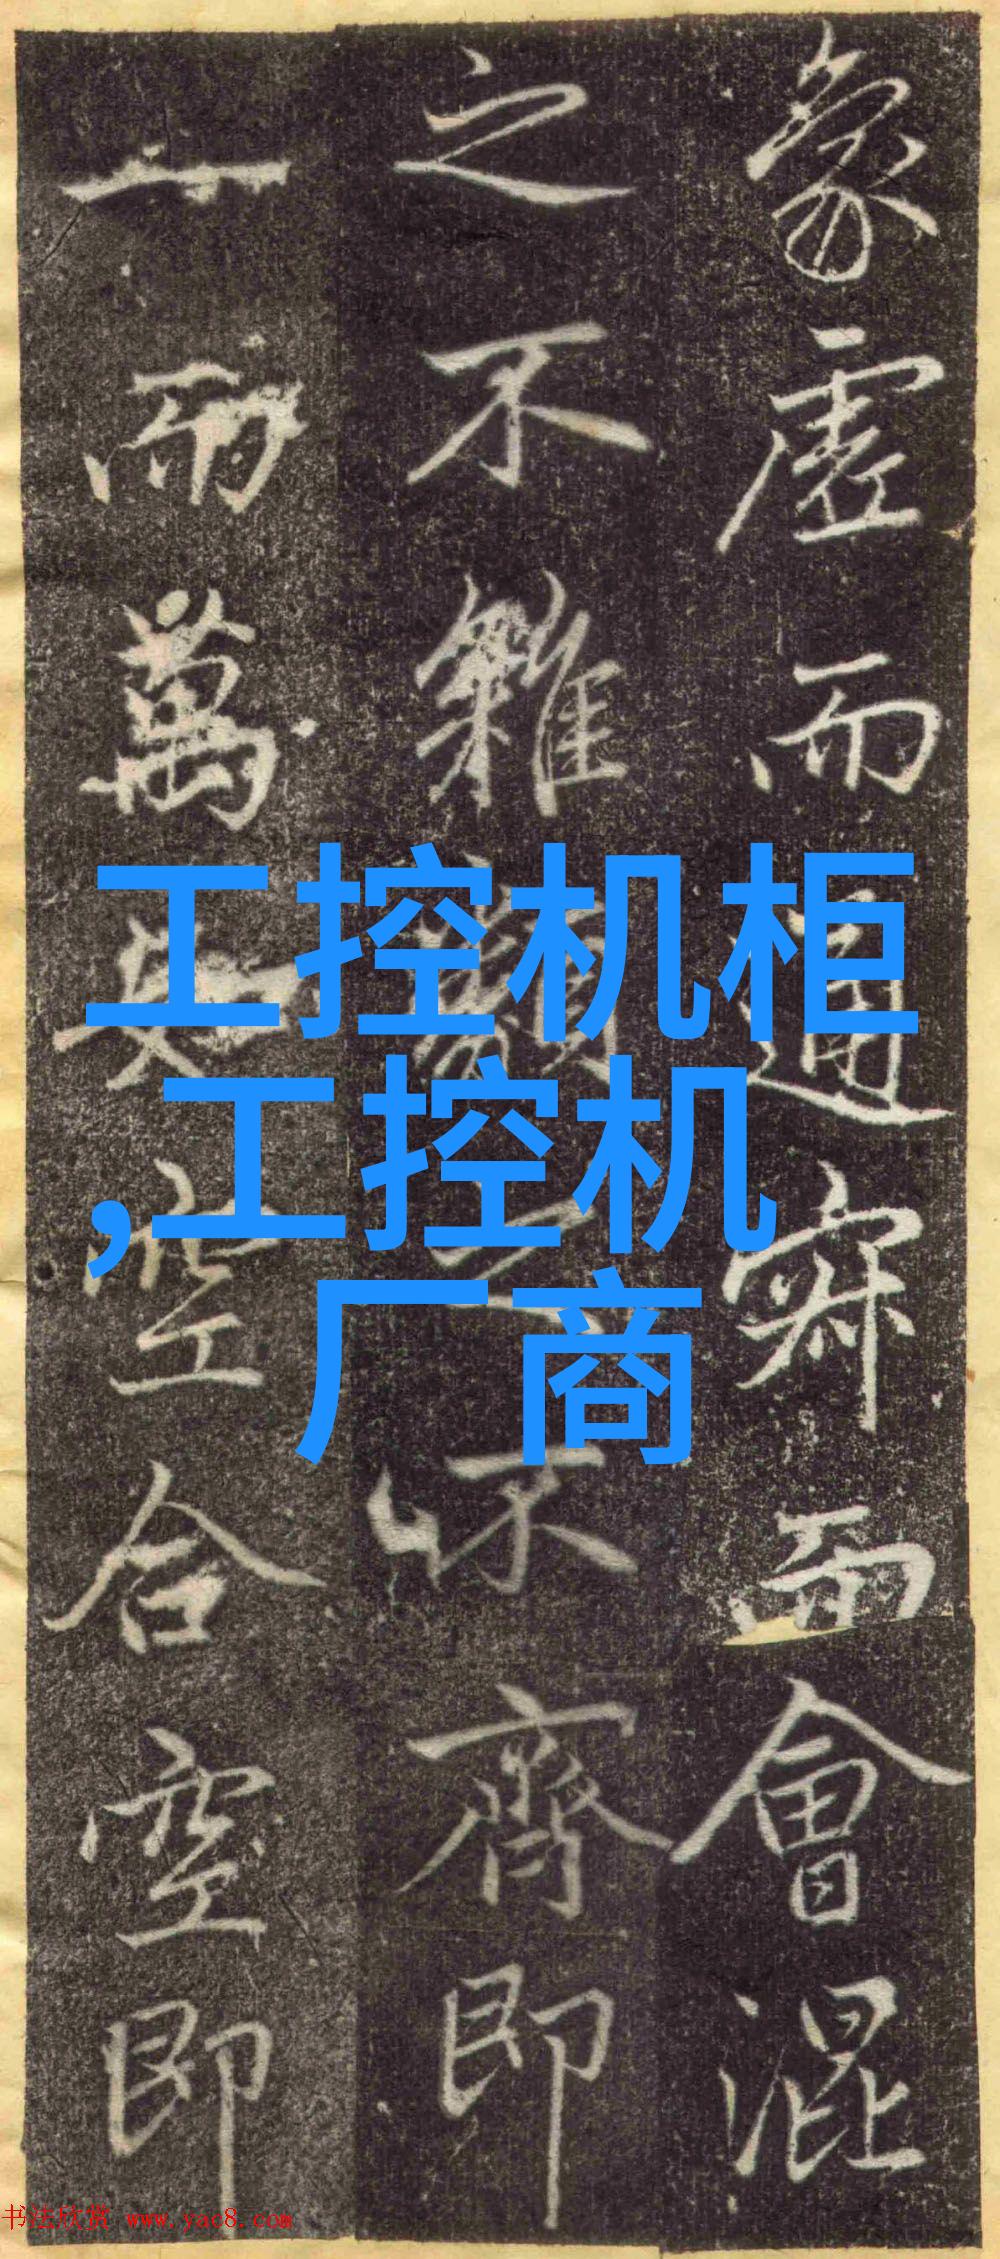 象虛而通寂而會混
之不雜類之不齊即
一而萬空合空即
工控机柜
,工控机
厂商
书法欣赏 www.yac8.com